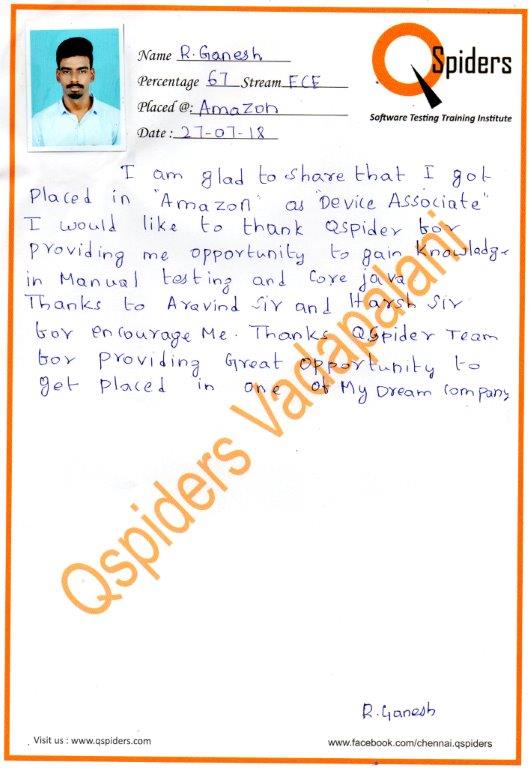 Name R. Ganesh
Percentage 67 Stream ECE
Placed @: Amazon
Date : 27-07-18
QSpiders
Software Testing Training Institute
I am glad to share that I got
placed in "Amazon" as "Device Associate"
I would like to thank Qspider for
providing me opportunity to gain knowledge
in Manual testing and Core java
Thanks to Aravind Sir and Harsh Sir
for encourage Me. Thanks QSpider Team
for providing Great Opportunity to
get placed in one of My Dream Company
Qspiders Vadapalani
R. Ganesh
Visit us : www.qspiders.com
www.facebook.com/chennai.qspiders